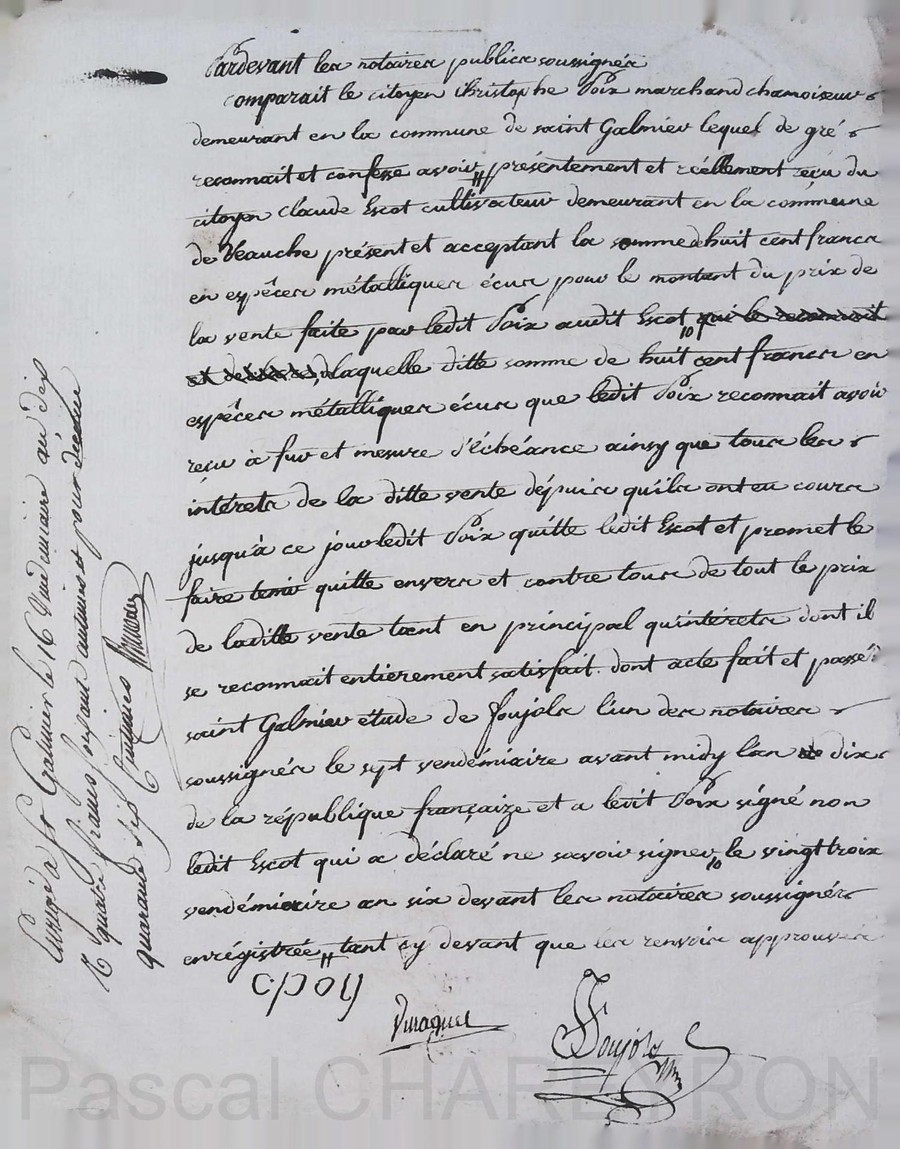 Pardevant les notaires publics soussignés
comparait le citoyen Christophe Poix marchand chamoiseur
demeurant en la commune de saint Galmier lequel de gré
reconnait et confesse avoir présentement et réellement reçu du
citoyen Claude Escot cultivateur demeurant en la commune
de Veauche présent et acceptant la somme d'huit cent francs
en espêces métalliques écus pour le montant du prix de
la vente faite par ledit Poix audit Escot qui le reconnait
laquelle ditte somme de huit cent francs en
espêces métalliques écus que ledit Poix reconnait avoir
reçu à fur et mesure d'échéance ainsy que tous les
intérets de la ditte vente dépuis qu'ils ont eu cours
jusqu'à ce jour ledit Poix quitte ledit Escot et promet le
faire tenir quitte envers et contre tous de tout le prix
de laditte vente tant en principal qu'intérets dont il
se reconnait entièrement satisfait. dont acte fait et passé à
saint Galmier étude de Foujols l'un des notaires
soussignés le sept vendémiaire avant midy l'an dix
de la république françaize et a ledit Poix signé non
ledit Escot qui a déclaré ne savoir signer, le vingt troix
vendémiaire an six devant les notaires soussignés
enrégistrée, tant cy devant que les renvois approuvés
Foujols
Enrégé à St Galmier le 16 Vendémiaire an dix
R quatre francs
quarante
Pascal CHAREYRON